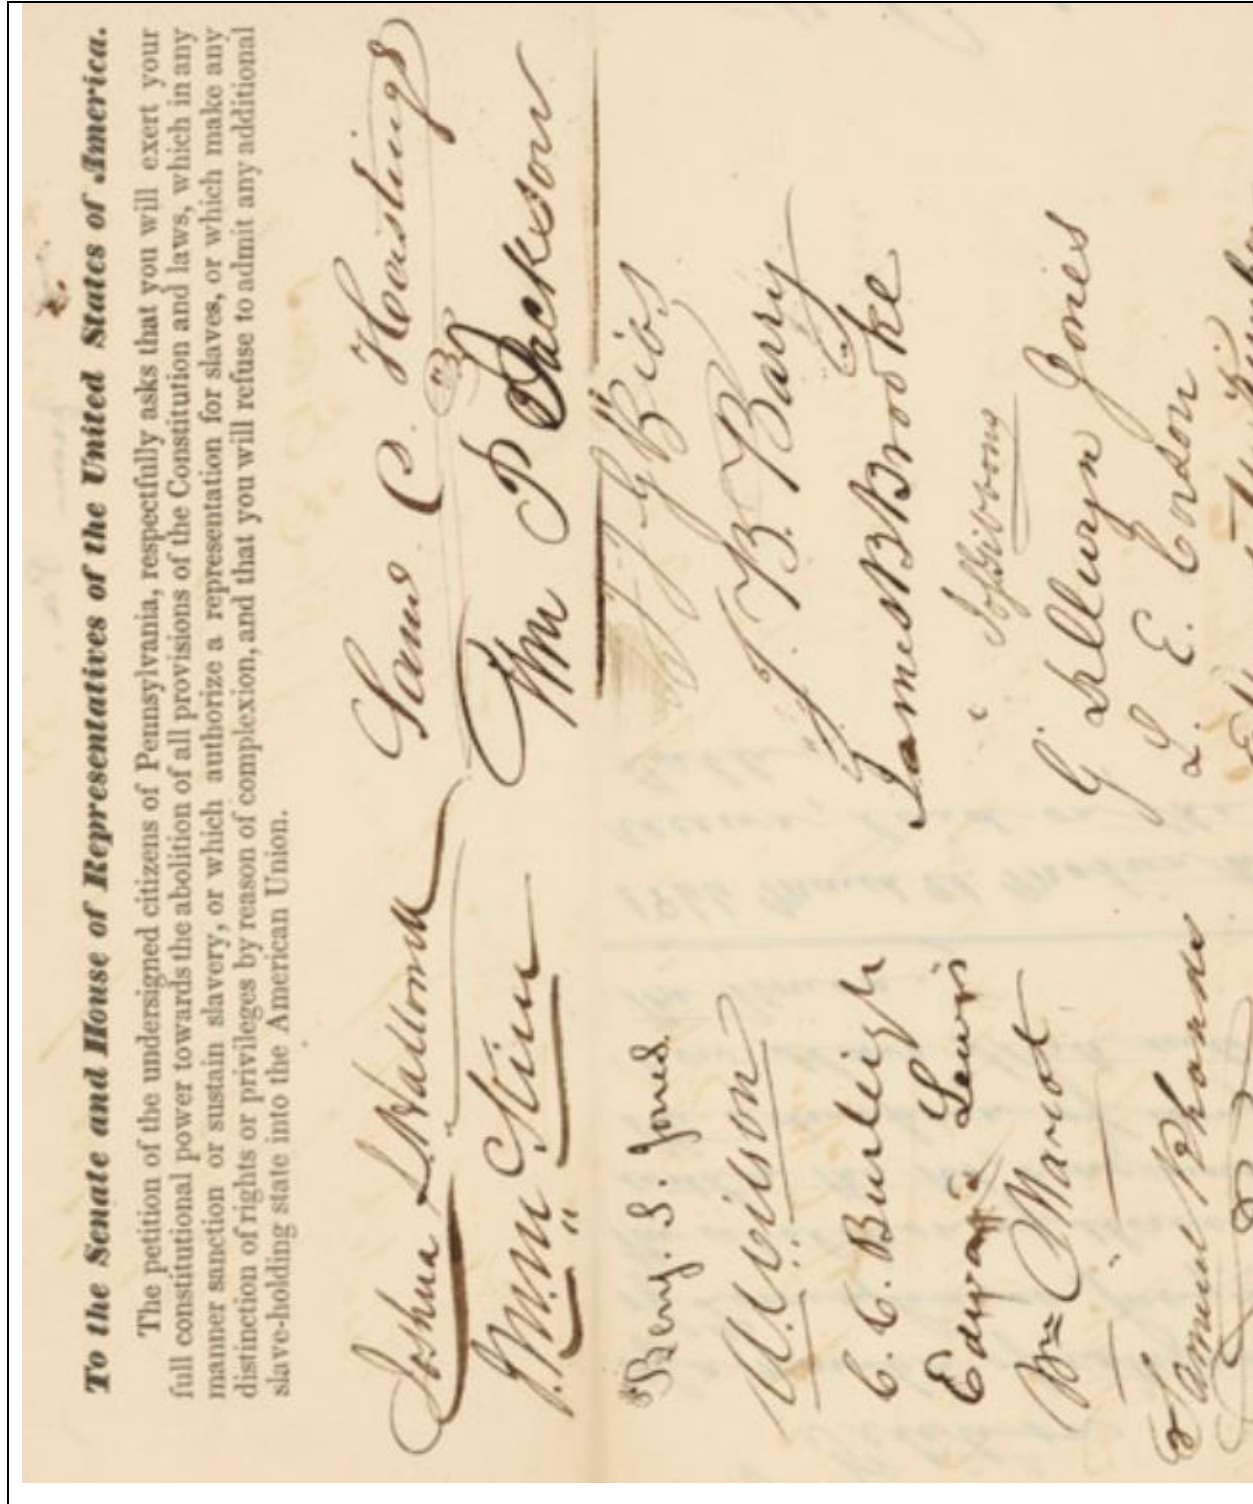 To the Senate and House of Representatives of the United States of America.
The petition of the undersigned citizens of Pennsylvania, respectfully asks that you will exert your
full constitutional power towards the abolition of all provisions of the Constitution and laws, which in any
manner sanction or sustain slavery, or which authorize a representation for slaves, or which make any
distinction of rights or privileges by reason of complexion, and that you will refuse to admit any additional
slave-holding state into the American Union.
Joshua L. Hallowell
Saml C. Hastings
Wm P Jackson
Benj. S. Jones.
J. B. Barry
Wilson
C. C. Burleigh
James B Brooke
Edward Lewis
Gibbons
Wm
G Llewyn Jones
L. E. Corson
Samuel Rhoads